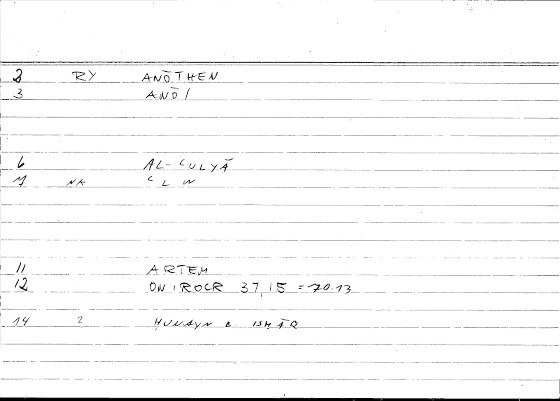 2 RY ANŌTHEN
3 ANŌ/
6 AL-ʿULYĀ
7 NK ʿLW
11 ARTEM
12 ONIROCR 37,15 = 70.13
14 2 ḤUNAYN B ISḤĀQ